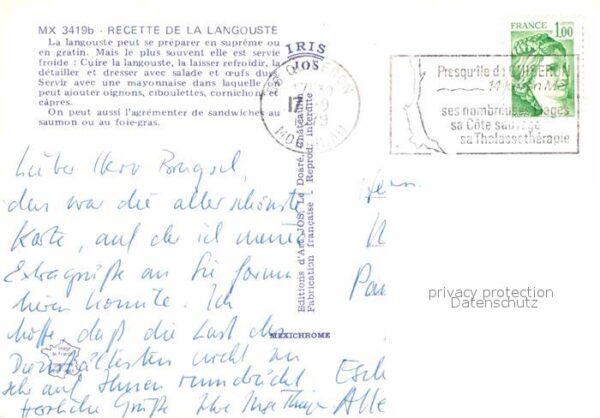 MX 3419b - RECETTE DE LA LANGOUSTE
La langouste peut se préparer en suprême ou
en gratin. Mais le plus souvent elle est servie
froide : Cuire la langouste, la laisser refroidir, la
détailler et dresser avec salade et œufs durs
Servir avec une mayonnaise dans laquelle
peut ajouter oignons, ciboulettes, cornichons et
câpres.
On peut aussi l'agrémenter de sandwiches au
saumon ou au foie-gras.
IRIS
JOS
QUIBERON
MORBIHAN
1,00
Presqu'ile de QUIBERON
14 km en Mer
ses nombreuses plages
sa Côte sauvage
sa Thalassothérapie
Editions d'Art JOS Le Doaré, Châteaulin
Fabrication française - Reprod. interdite
MEXICHROME
Lieber Herr
das war die aller schönste
Karte, auf der ich meine
Extragrüße an Sie
konnte. Ich
hoffe, daß die Last des
Dienstältesten nicht zu
sehr auf Ihnen
Herzliche Grüße Ihre
Herrn
privacy protection
Datenschutz